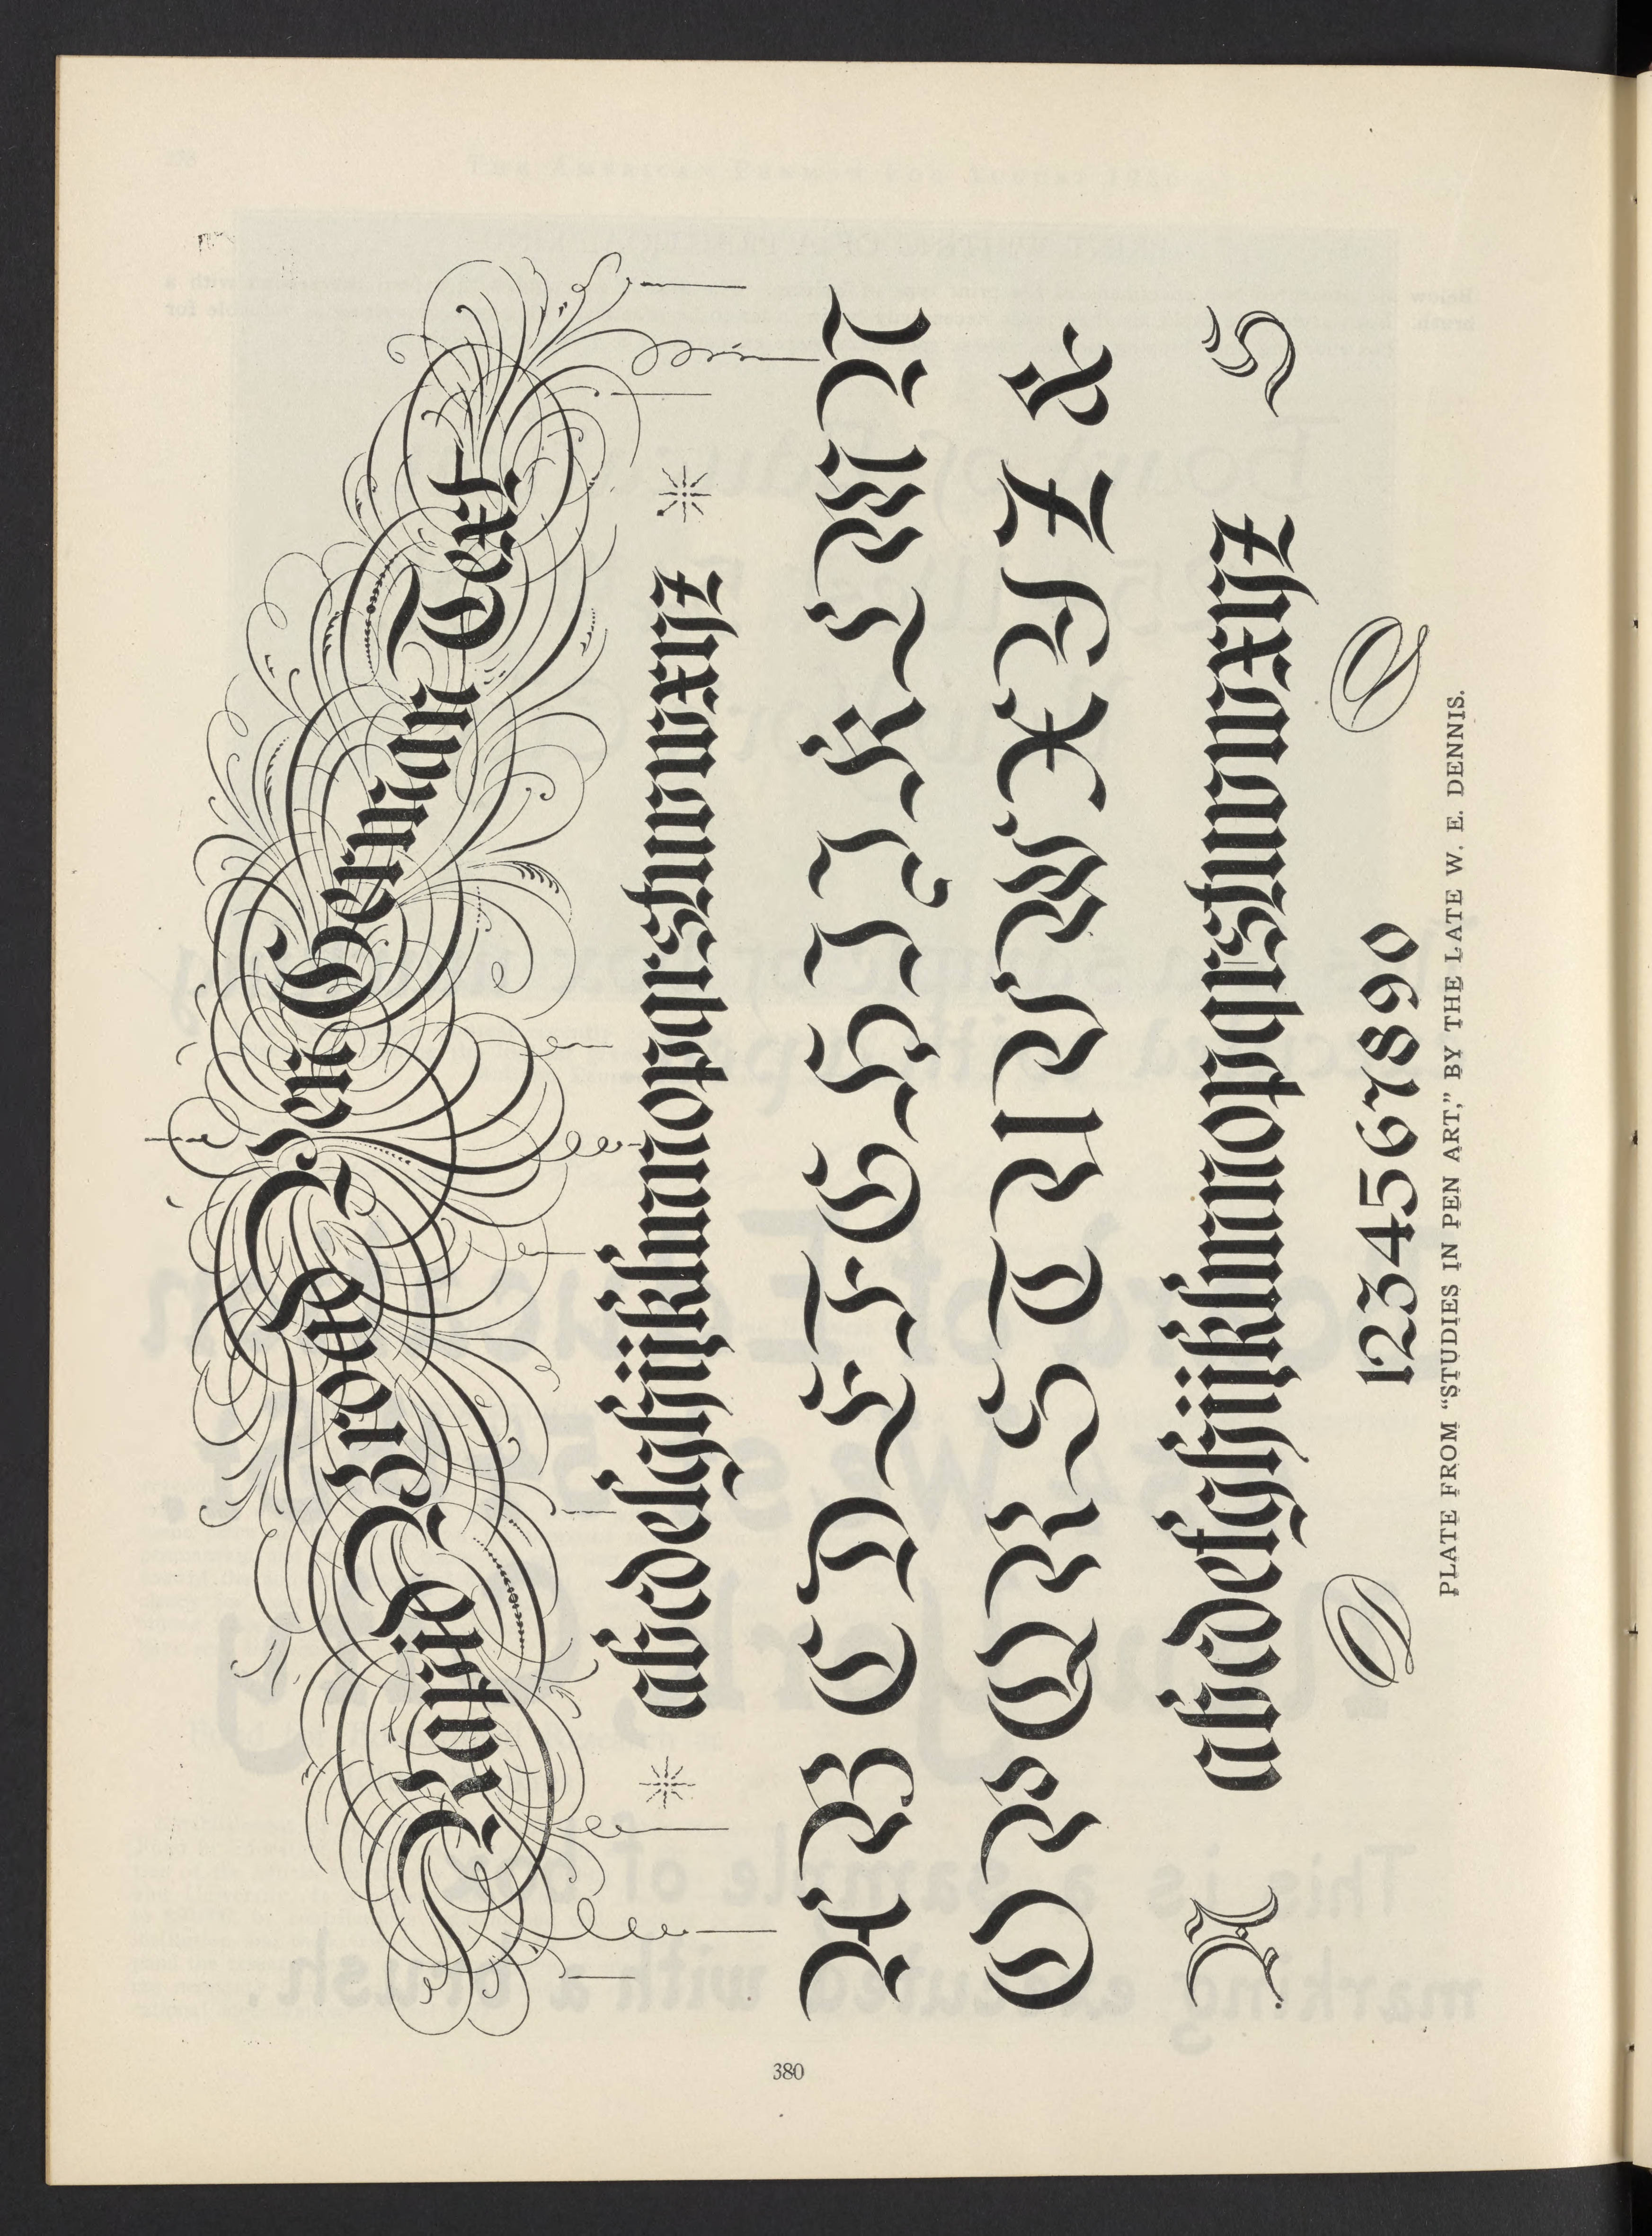 Rapid Broad Pen German Text
abcdefghijklmnopqrstuvwxyz
A B C D E F G H I J K L M N
O P Q R S T U V W X Y Z &
abcdefghijklmnopqrstuvwxyz
1234567890
PLATE FROM "STUDIES IN PEN ART," BY THE LATE W. E. DENNIS.
380